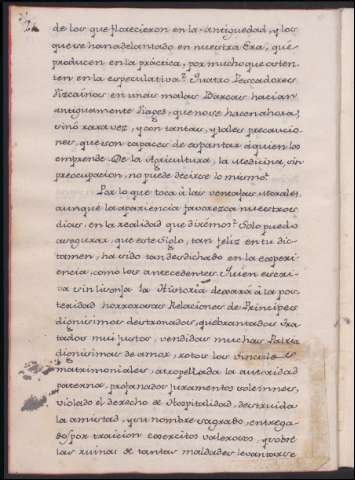 de los que florecieron en la antiguedad, y los
que se han adelantado en nuestra Era, que
producen en la práctica, por mucho que osten-
ten en la especulativa? Quatro Pescadores
Vizcainos en unas malas Barcas hacian
antiguamente Viages, que no se hacen ahora,
sinó rara vez, y con tantas, y tales precaucio-
nes, que son capaces de espantar á quien los
emprende. De la Agricultura, la Medicina, sin
preocupacion, no puede decirse lo mismo?
Por lo que toca á las ventajas morales,
aunque la apariencia favorezca nuestros
dias, en la realidad que dirémos? Solo puedo
asegurar, que este Siglo, tan feliz en tu dic-
tamen, ha sido tan desdichado en la experi
encia, como los antecedentes. Quien escri-
va sin lisonja la Historia dexará á la pos-
teridad horrorosas Relaciones de Principes
dignisimos destronados, quebrantados Tra-
tados mui justos, vendidas muchas Patrias
dignisimas de amor, rotos los vinculos
matrimoniales, atropellada la autoridad
paterna, profanados juramentos solemnes,
violado el derecho de Hospitalidad, destruida
la amistad, y su nombre sagrado, entrega-
dos por traicion exercitos valerosos, y sobre
las ruinas de tantas maldades levantarse